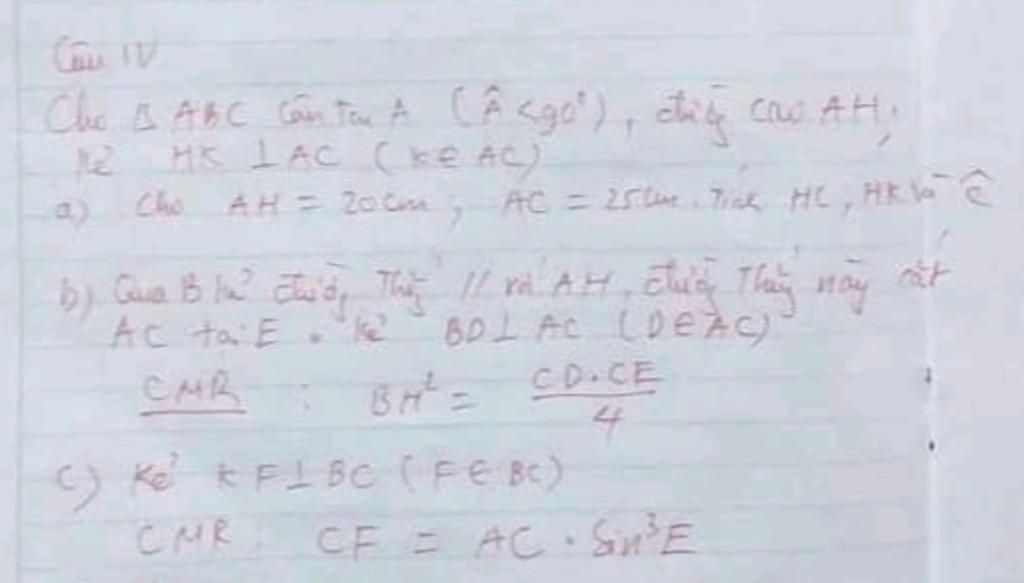 Câu IV
Cho Δ ABC cân tại A (Â < 90°), đường cao AH.
Kẻ HK ⊥ AC (K ∈ AC)
a) Cho AH = 20cm, AC = 25cm. Tính HC, HK và Ĉ
b) Qua B kẻ đường thẳng // với AH, đường thẳng này cắt
AC tại E. Kẻ BD ⊥ AC (D ∈ AC)
CMR : BH² = CD.CE / 4
c) Kẻ KF ⊥ BC (F ∈ BC)
CMR : CF = AC . Sin³E